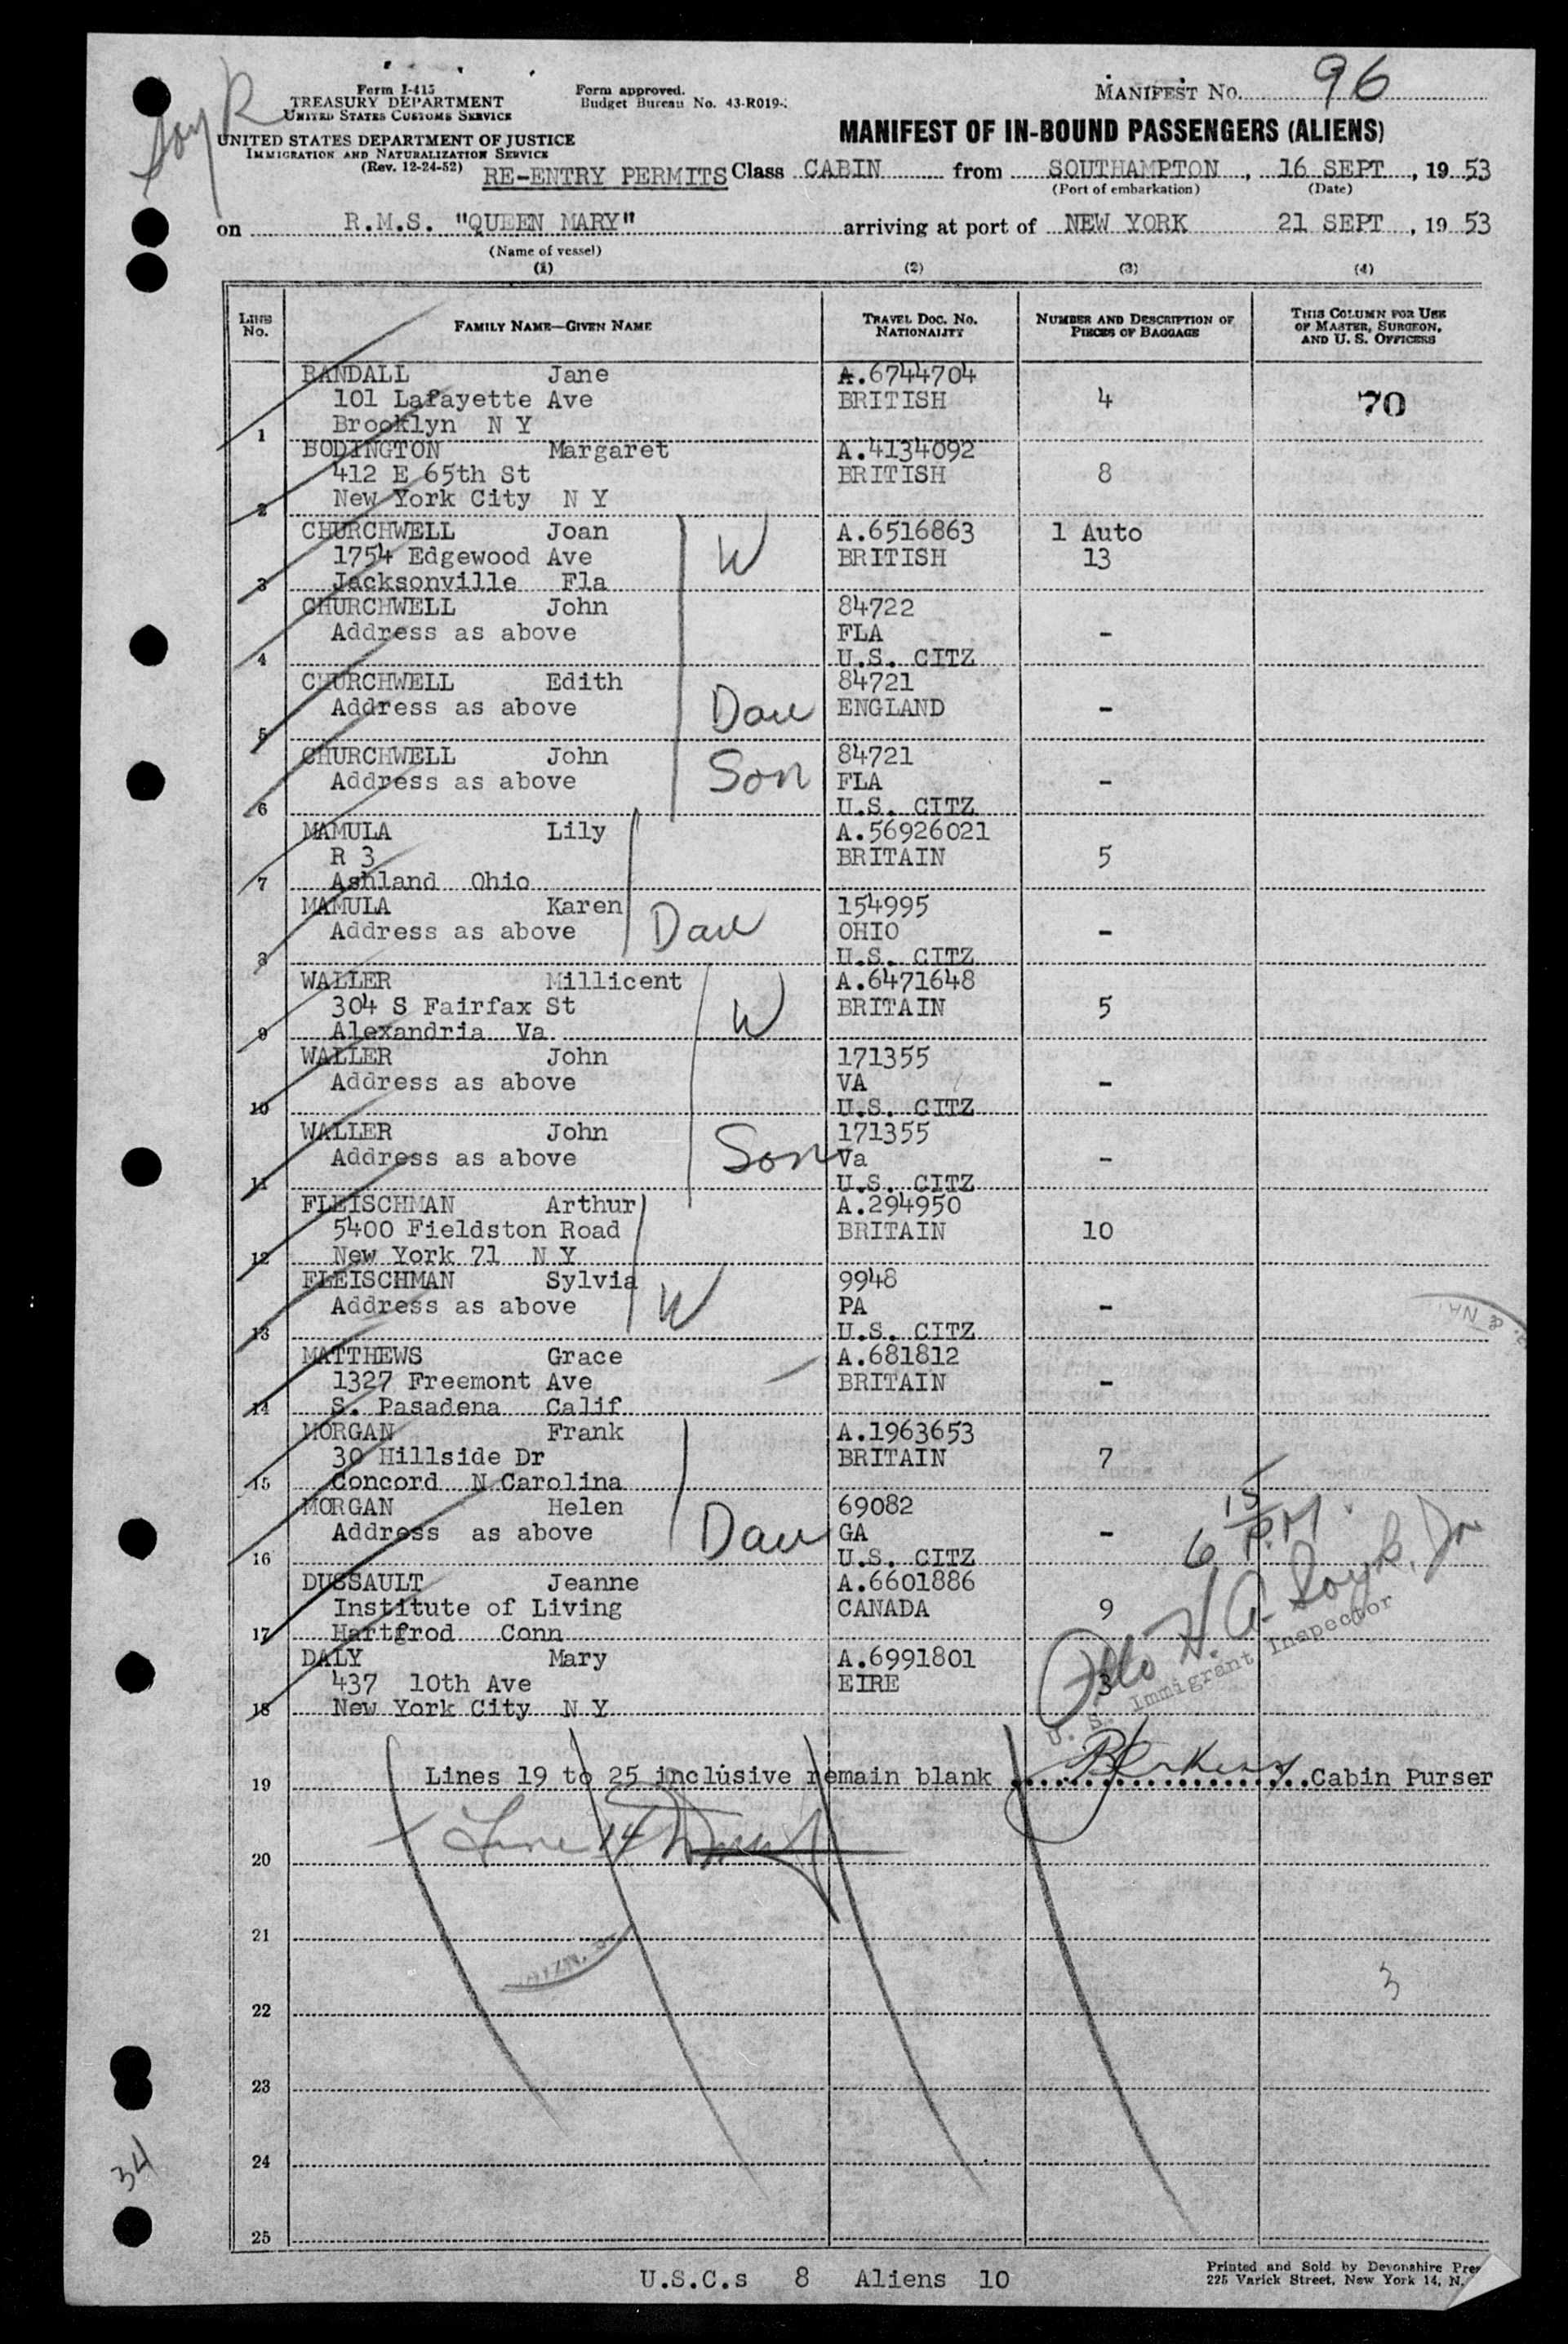 Soy R
Form I-415
TREASURY DEPARTMENT
UNITED STATES CUSTOMS SERVICE
UNITED STATES DEPARTMENT OF JUSTICE
IMMIGRATION AND NATURALIZATION SERVICE
(Rev. 12-24-52)
Form approved.
Budget Bureau No. 43-R019-
MANIFEST No. 96
MANIFEST OF IN-BOUND PASSENGERS (ALIENS)
RE-ENTRY PERMITS Class CABIN from SOUTHAMPTON, 16 SEPT, 19 53
(Port of embarkation) (Date)
on R.M.S. "QUEEN MARY" arriving at port of NEW YORK 21 SEPT, 19 53
(Name of vessel)
(1) (2) (3) (4)
LINE No. FAMILY NAME—GIVEN NAME TRAVEL DOC. NO. NATIONALITY NUMBER AND DESCRIPTION OF PIECES OF BAGGAGE THIS COLUMN FOR USE OF MASTER, SURGEON, AND U. S. OFFICERS
RANDALL Jane A.6744704
101 Lafayette Ave BRITISH 4 70
1 Brooklyn N Y
BODINGTON Margaret A.4134092
412 E 65th St BRITISH 8
2 New York City N Y
CHURCHWELL Joan W A.6516863 1 Auto
1754 Edgewood Ave BRITISH 13
3 Jacksonville Fla
CHURCHWELL John 84722
Address as above FLA -
4 U.S. CITZ
CHURCHWELL Edith 84721
Address as above Dau ENGLAND -
5
CHURCHWELL John 84721
Address as above Son FLA -
6 U.S. CITZ
MAMULA Lily A.56926021
R 3 BRITAIN 5
7 Ashland Ohio
MAMULA Karen 154995
Address as above Dau OHIO -
8 U.S. CITZ
WALLER Millicent A.6471648
304 S Fairfax St W BRITAIN 5
9 Alexandria Va
WALLER John 171355
Address as above VA -
10 U.S. CITZ
WALLER John 171355
Address as above Son Va -
11 U.S. CITZ
FLEISCHMAN Arthur A.294950
5400 Fieldston Road BRITAIN 10
12 New York 71 N Y
FLEISCHMAN Sylvia 9948
Address as above W PA -
13 U.S. CITZ
MATTHEWS Grace A.681812
1327 Freemont Ave BRITAIN -
14 S. Pasadena Calif
MORGAN Frank A.1963653
30 Hillside Dr BRITAIN 7
15 Concord N Carolina
MORGAN Helen 69082
Address as above Dau GA -
16 U.S. CITZ
DUSSAULT Jeanne A.6601886
Institute of Living CANADA 9
17 Hartfrod Conn
DALY Mary A.6991801
437 10th Ave EIRE 3
18 New York City N Y
6 15 P.M.
Otto H. A. Soyk, Jr
U. S. Immigrant Inspector
19 Lines 19 to 25 inclusive remain blank Cabin Purser
Line 14
20
21
22
3
23
24
34
25
U.S.C.s 8 Aliens 10
Printed and Sold by Devonshire
225 Varick Street, New York 14, N.